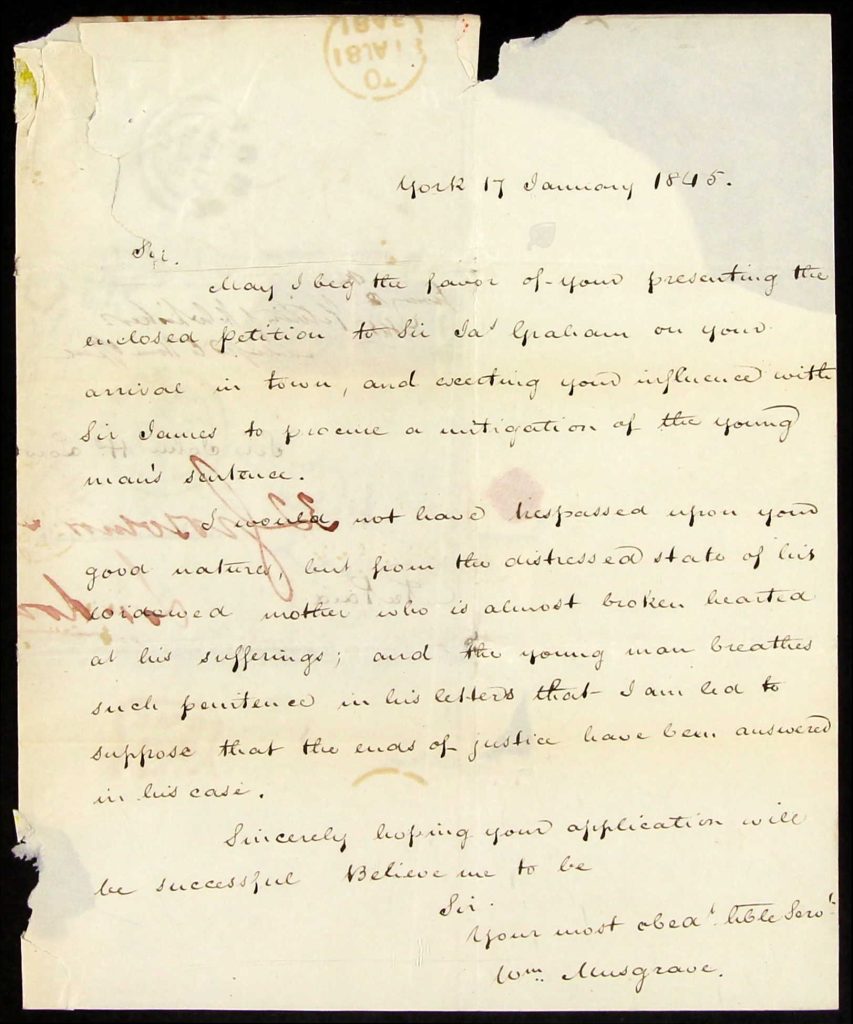 TO
18 JA 18
1845
York 17 January 1845.
Sir.
May I beg the favor of your presenting the
enclosed petition to Sir Jas Graham on your
arrival in town, and exerting your influence with
Sir James to procure a mitigation of the young
man's sentence.
I would not have trespassed upon your
good nature, but from the distressed state of his
widowed mother who is almost broken hearted
at his sufferings; and the young man breathes
such penitence in his letters that I am led to
suppose that the ends of justice have been answered
in his case.
Sincerely hoping your application will
be successful Believe me to be
Sir.
Your most obedt hble Servt
Wm Musgrave.